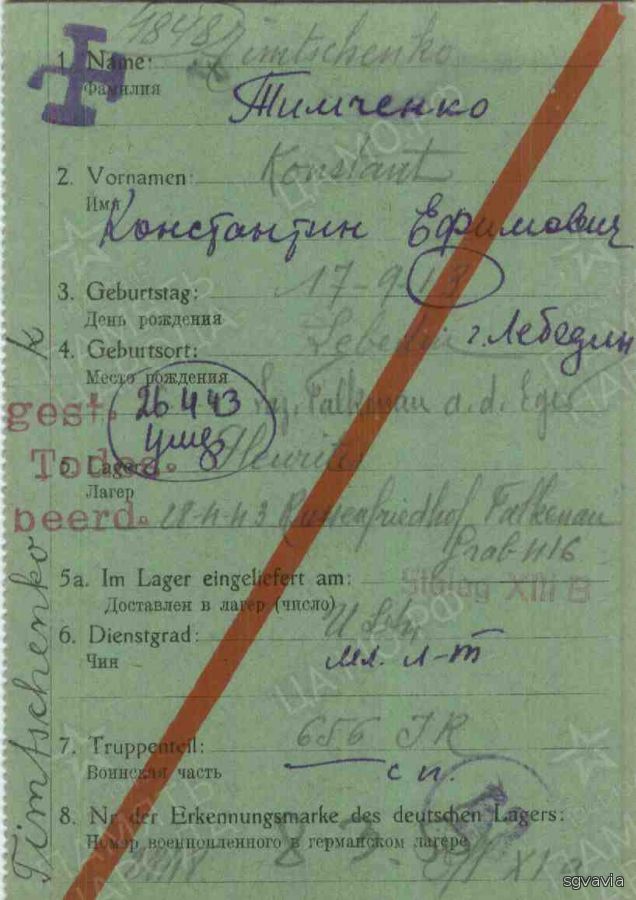 48487 Timtschenko
1. Name:
Фамилия
Тимченко
2. Vornamen: Konstant
Имя
Константин Ефимович
3. Geburtstag: 17-9-13
День рождения
4. Geburtsort: Lebedin г. Лебедин
Место рождения
26 4 43 Falkenau a. d. Eger
gest.
умер
Todes.
5. Lager:
Лагер
beerd. 28-4-43 Russenfriedhof Falkenau
Grab
5a. Im Lager eingeliefert am: Stalag XIII B
Доставлен в лагер (число)
6. Dienstgrad:
Чин мл. л-т
7. Truppenteil: 656 JR
Воинская часть с п.
8. Nr der Erkennungsmarke des deutschen Lagers:
Номэр военнопленного в германском лагере
Timtschenko K
sgvavia